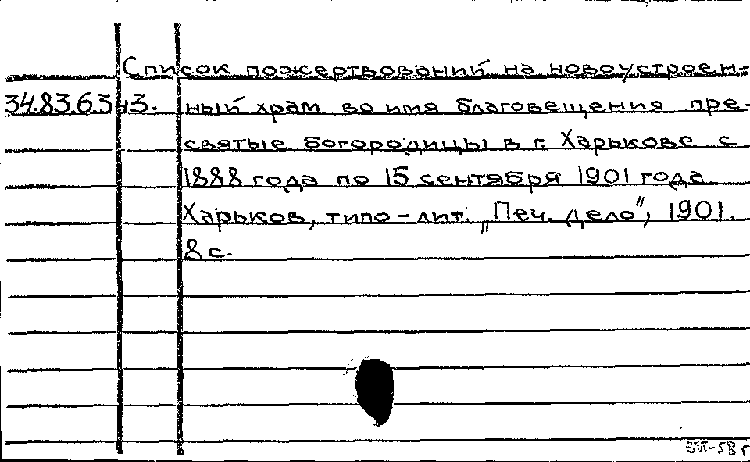 Список пожертвований на новоустроен-
34.83.63 н3. ный храм во имя благовещения пре-
святые богородицы в г. Харькове с
1888 года по 15 сентября 1901 года.
Харьков, типо-лит. „Печ. дело", 1901.
8 с.